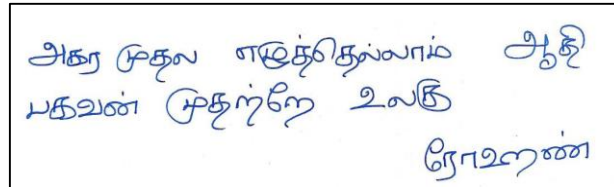 அகர முதல எழுத்தெல்லாம் ஆதி
பகவன் முதற்றே உலகு
ரோஹண்